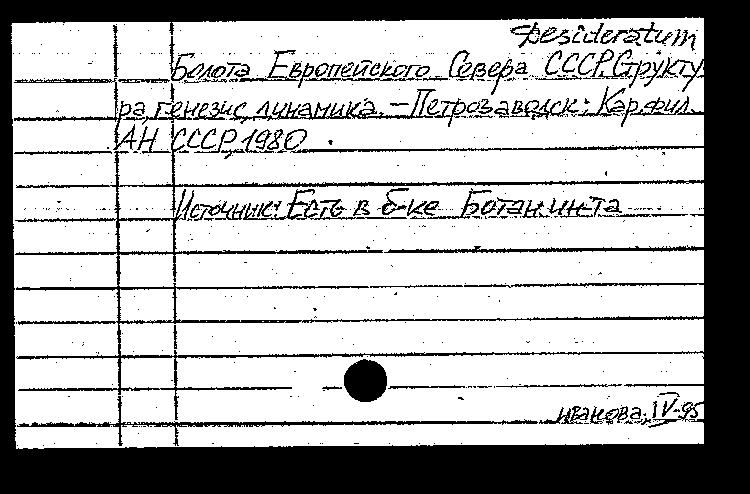 Desideratum
Болота Европейского Севера СССР. Структу-
ра, генезис, динамика. – Петрозаводск: Кар. фил.
АН СССР, 1980.
Источник: Есть в б-ке Ботан. ин-та
иванова, IV-95